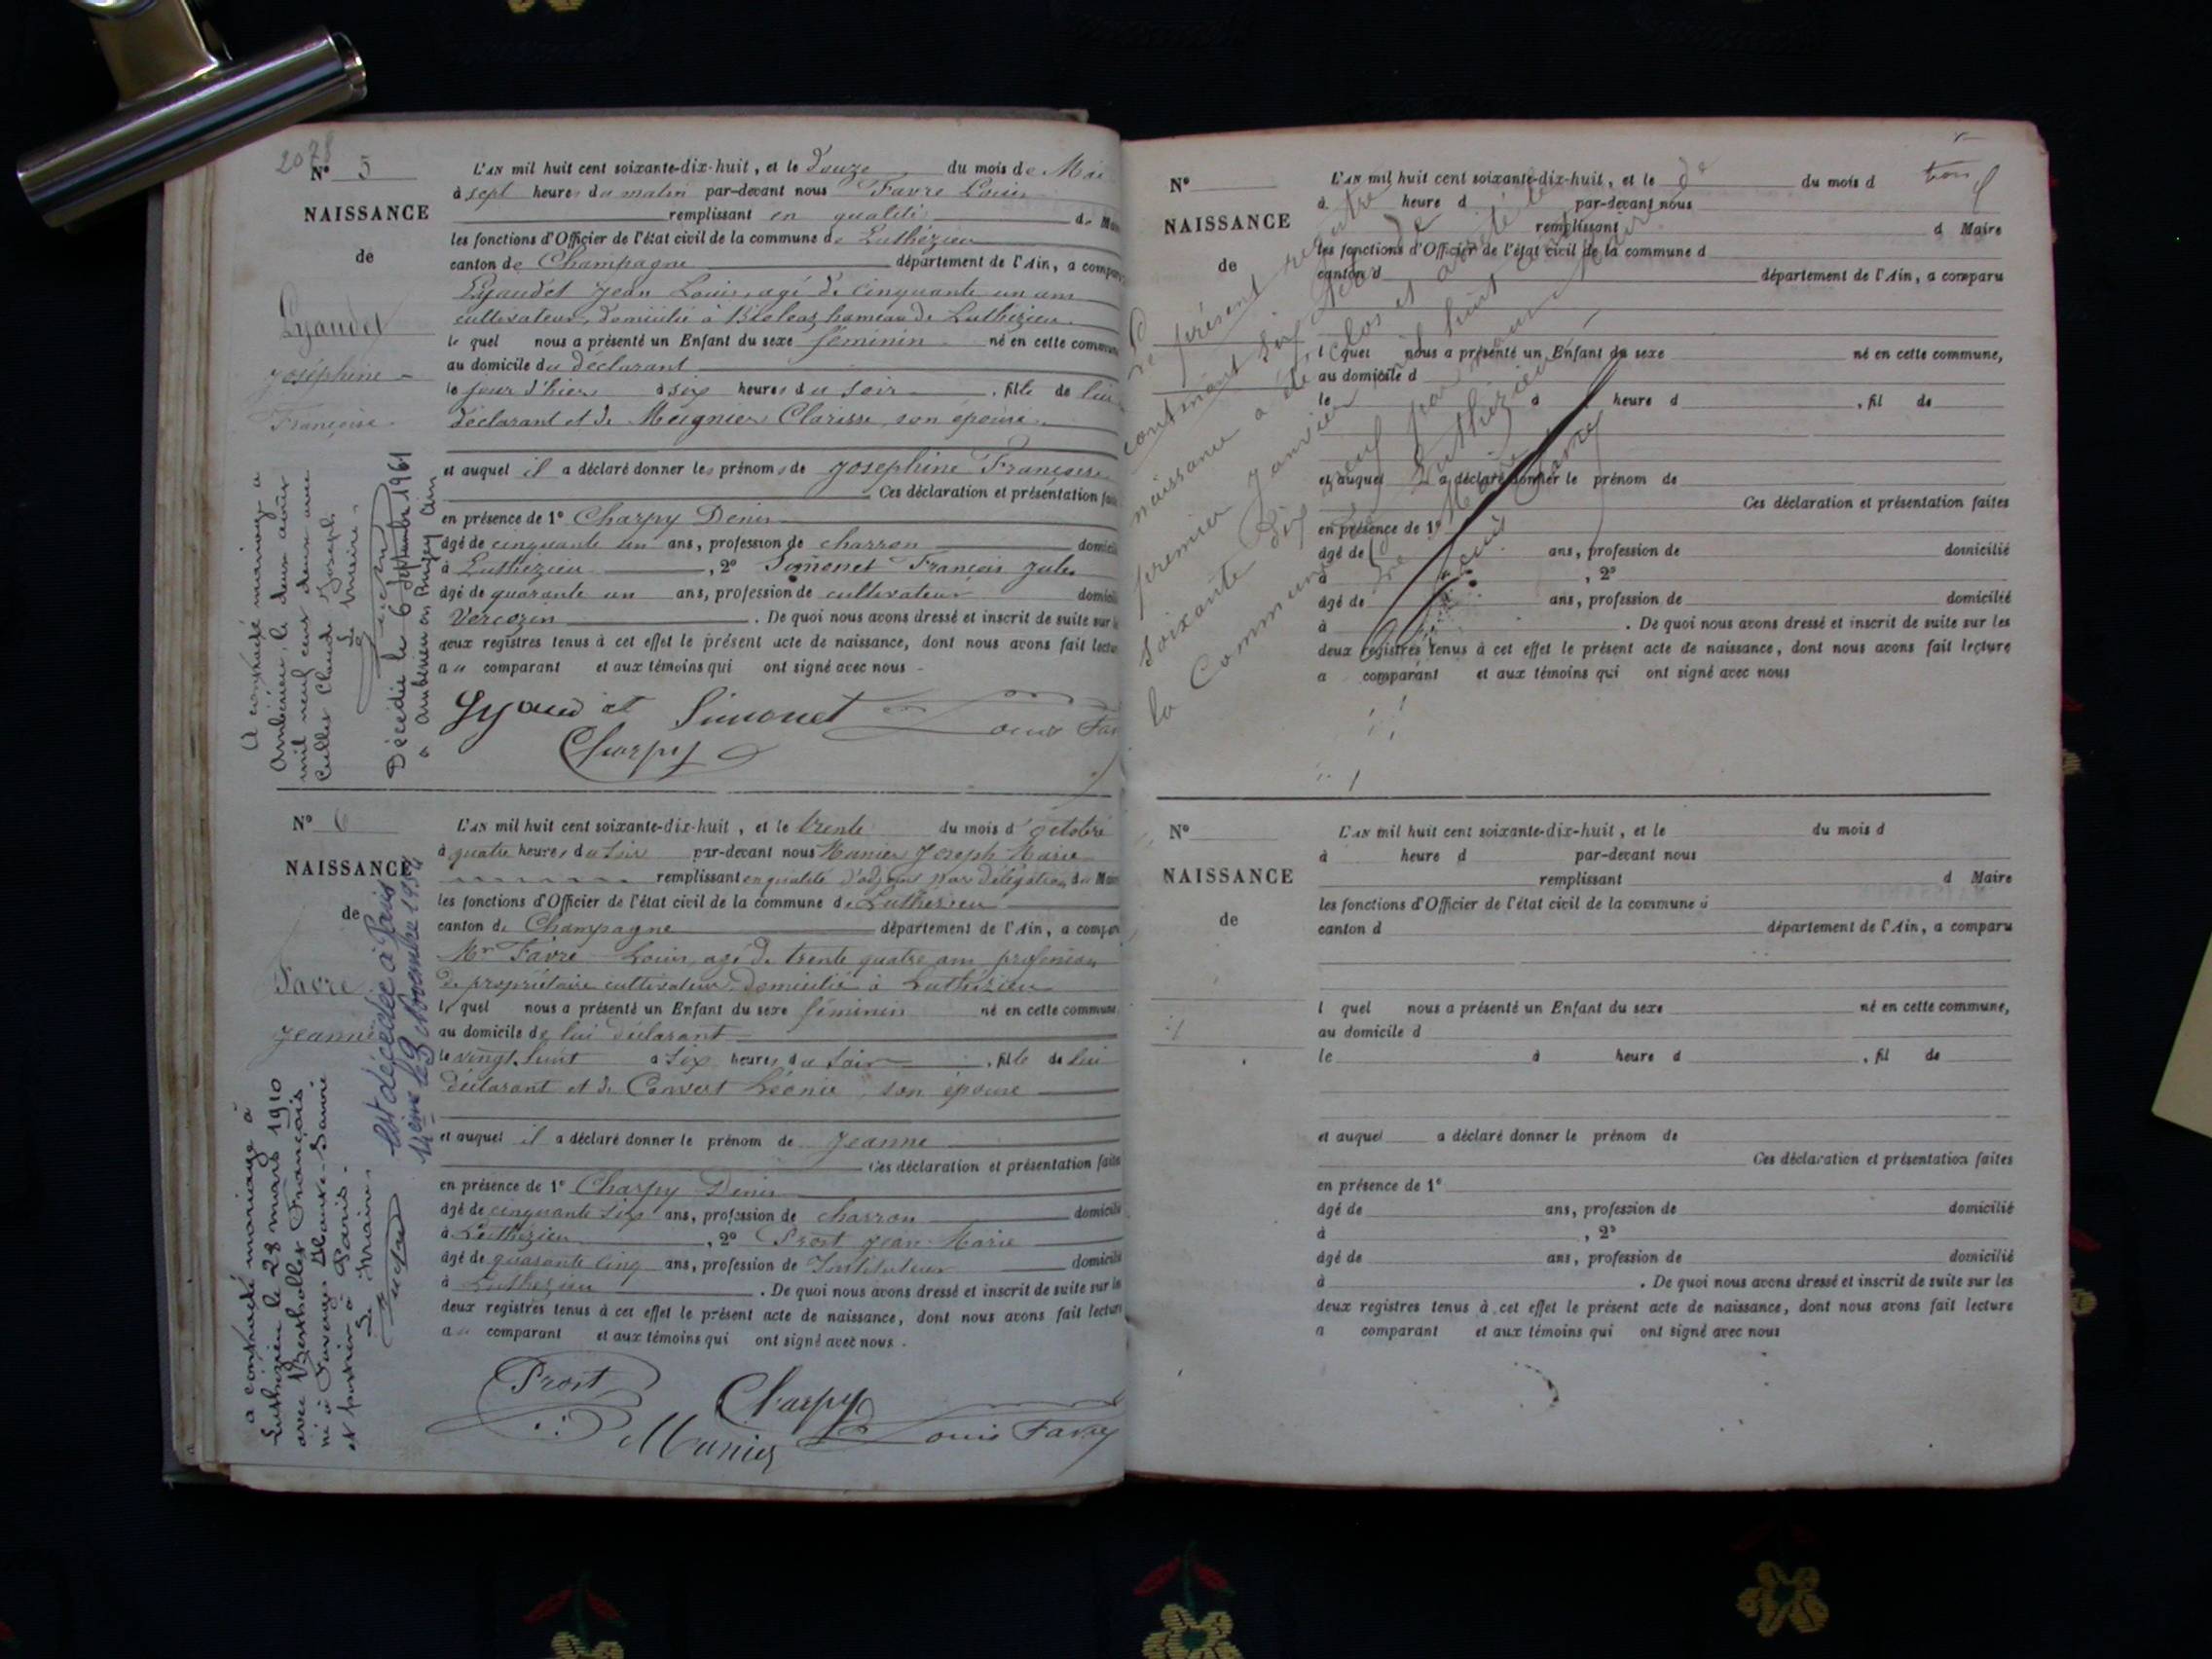 2078
N° 5
NAISSANCE
de
Lyaudet
Joséphine
Françoise
L'AN mil huit cent soixante-dix-huit, et le douze du mois de Mai
à sept heures du matin par-devant nous Favre Louis
remplissant en qualité de Mai
les fonctions d'Officier de l'état civil de la commune de Luthézieu
canton de Champagne département de l'Ain, a compar
Lyaudet Jean Louis, agé de cinquante un ans
cultivateur, domicilié à hameau de Luthézieu
le quel nous a présenté un Enfant du sexe féminin né en cette commun
au domicile du déclarant
le jour d'hier à six heures du soir, fille de lui
déclarant et de Meignier Clarisse, son épouse
et auquel il a déclaré donner les prénoms de Joséphine Françoise
Ces déclaration et présentation fait
en présence de 1° Charpy Denis
âgé de cinquante un ans, profession de charron domicili
à Luthézieu, 2° Simonet François Jules
âgé de quarante un ans, profession de cultivateur domicili
Vercozin. De quoi nous avons dressé et inscrit de suite sur l
deux registres tenus à cet effet le présent acte de naissance, dont nous avons fait lectu
au comparant et aux témoins qui ont signé avec nous
Lyaudet Simonet Louis Fav
Charpy
A contracté mariage à
le deux août
mil neuf cent deux avec
Cullet Claude Joseph
Le Maire,
Décédée le 6 septembre 1961
à Ambérieu en Bugey Ain
N° 6
NAISSANCE
de
Favre
Jeanne
L'AN mil huit cent soixante-dix-huit, et le trente du mois d'octobre
à quatre heures du soir par-devant nous Munier Joseph Marie
remplissant en qualité d'adjoint par délégation du Mai
les fonctions d'Officier de l'état civil de la commune de Luthézieu
canton de Champagne département de l'Ain, a compar
Mr Favre Louis, agé de trente quatre ans profession
de propriétaire cultivateur domicilié à Luthézieu
le quel nous a présenté un Enfant du sexe féminin né en cette commune
au domicile de lui déclarant
le vingt huit à six heures du soir, fille de lui
déclarant et de Convert Léonie, son épouse
et auquel il a déclaré donner le prénom de Jeanne
Ces déclaration et présentation faite
en présence de 1° Charpy Denis
âgé de cinquante six ans, profession de charron domicilié
à Luthézieu, 2° Prost Jean Marie
âgé de quarante cinq ans, profession de Instituteur domicilié
à Luthézieu. De quoi nous avons dressé et inscrit de suite sur le
deux registres tenus à cet effet le présent acte de naissance, dont nous avons fait lecture
au comparant et aux témoins qui ont signé avec nous
Prost Charpy
Munier Louis Favre
a contracté mariage à
Luthézieu le 28 mars 1910
avec Berthollet François
né à Faverges Haute-Savoie
et portier à Paris
Le Maire,
Est décédée à Paris
14ème le 3 Novembre 1954
N°
NAISSANCE
de
L'AN mil huit cent soixante-dix-huit, et le du mois d
à heure d par-devant nous
remplissant d Maire
les fonctions d'Officier de l'état civil de la commune d
canton d département de l'Ain, a comparu
l quel nous a présenté un Enfant du sexe né en cette commune,
au domicile d
le à heure d, fil de
et auquel a déclaré donner le prénom de
Ces déclaration et présentation faites
en présence de 1°
âgé de ans, profession de domicilié
à, 2°
âgé de ans, profession de domicilié
à. De quoi nous avons dressé et inscrit de suite sur les
deux registres tenus à cet effet le présent acte de naissance, dont nous avons fait lecture
a comparant et aux témoins qui ont signé avec nous
Le présent registre
contenant six actes de
naissance a été clos et arrêté le
premier Janvier mil huit cent
soixante dix neuf par nous Maire
la Commune de Luthézieu
Le Maire
Louis Favre
N°
NAISSANCE
de
L'AN mil huit cent soixante-dix-huit, et le du mois d
à heure d par-devant nous
remplissant d Maire
les fonctions d'Officier de l'état civil de la commune d
canton d département de l'Ain, a comparu
l quel nous a présenté un Enfant du sexe né en cette commune,
au domicile d
le à heure d, fil de
et auquel a déclaré donner le prénom de
Ces déclaration et présentation faites
en présence de 1°
âgé de ans, profession de domicilié
à, 2°
âgé de ans, profession de domicilié
à. De quoi nous avons dressé et inscrit de suite sur les
deux registres tenus à cet effet le présent acte de naissance, dont nous avons fait lecture
a comparant et aux témoins qui ont signé avec nous